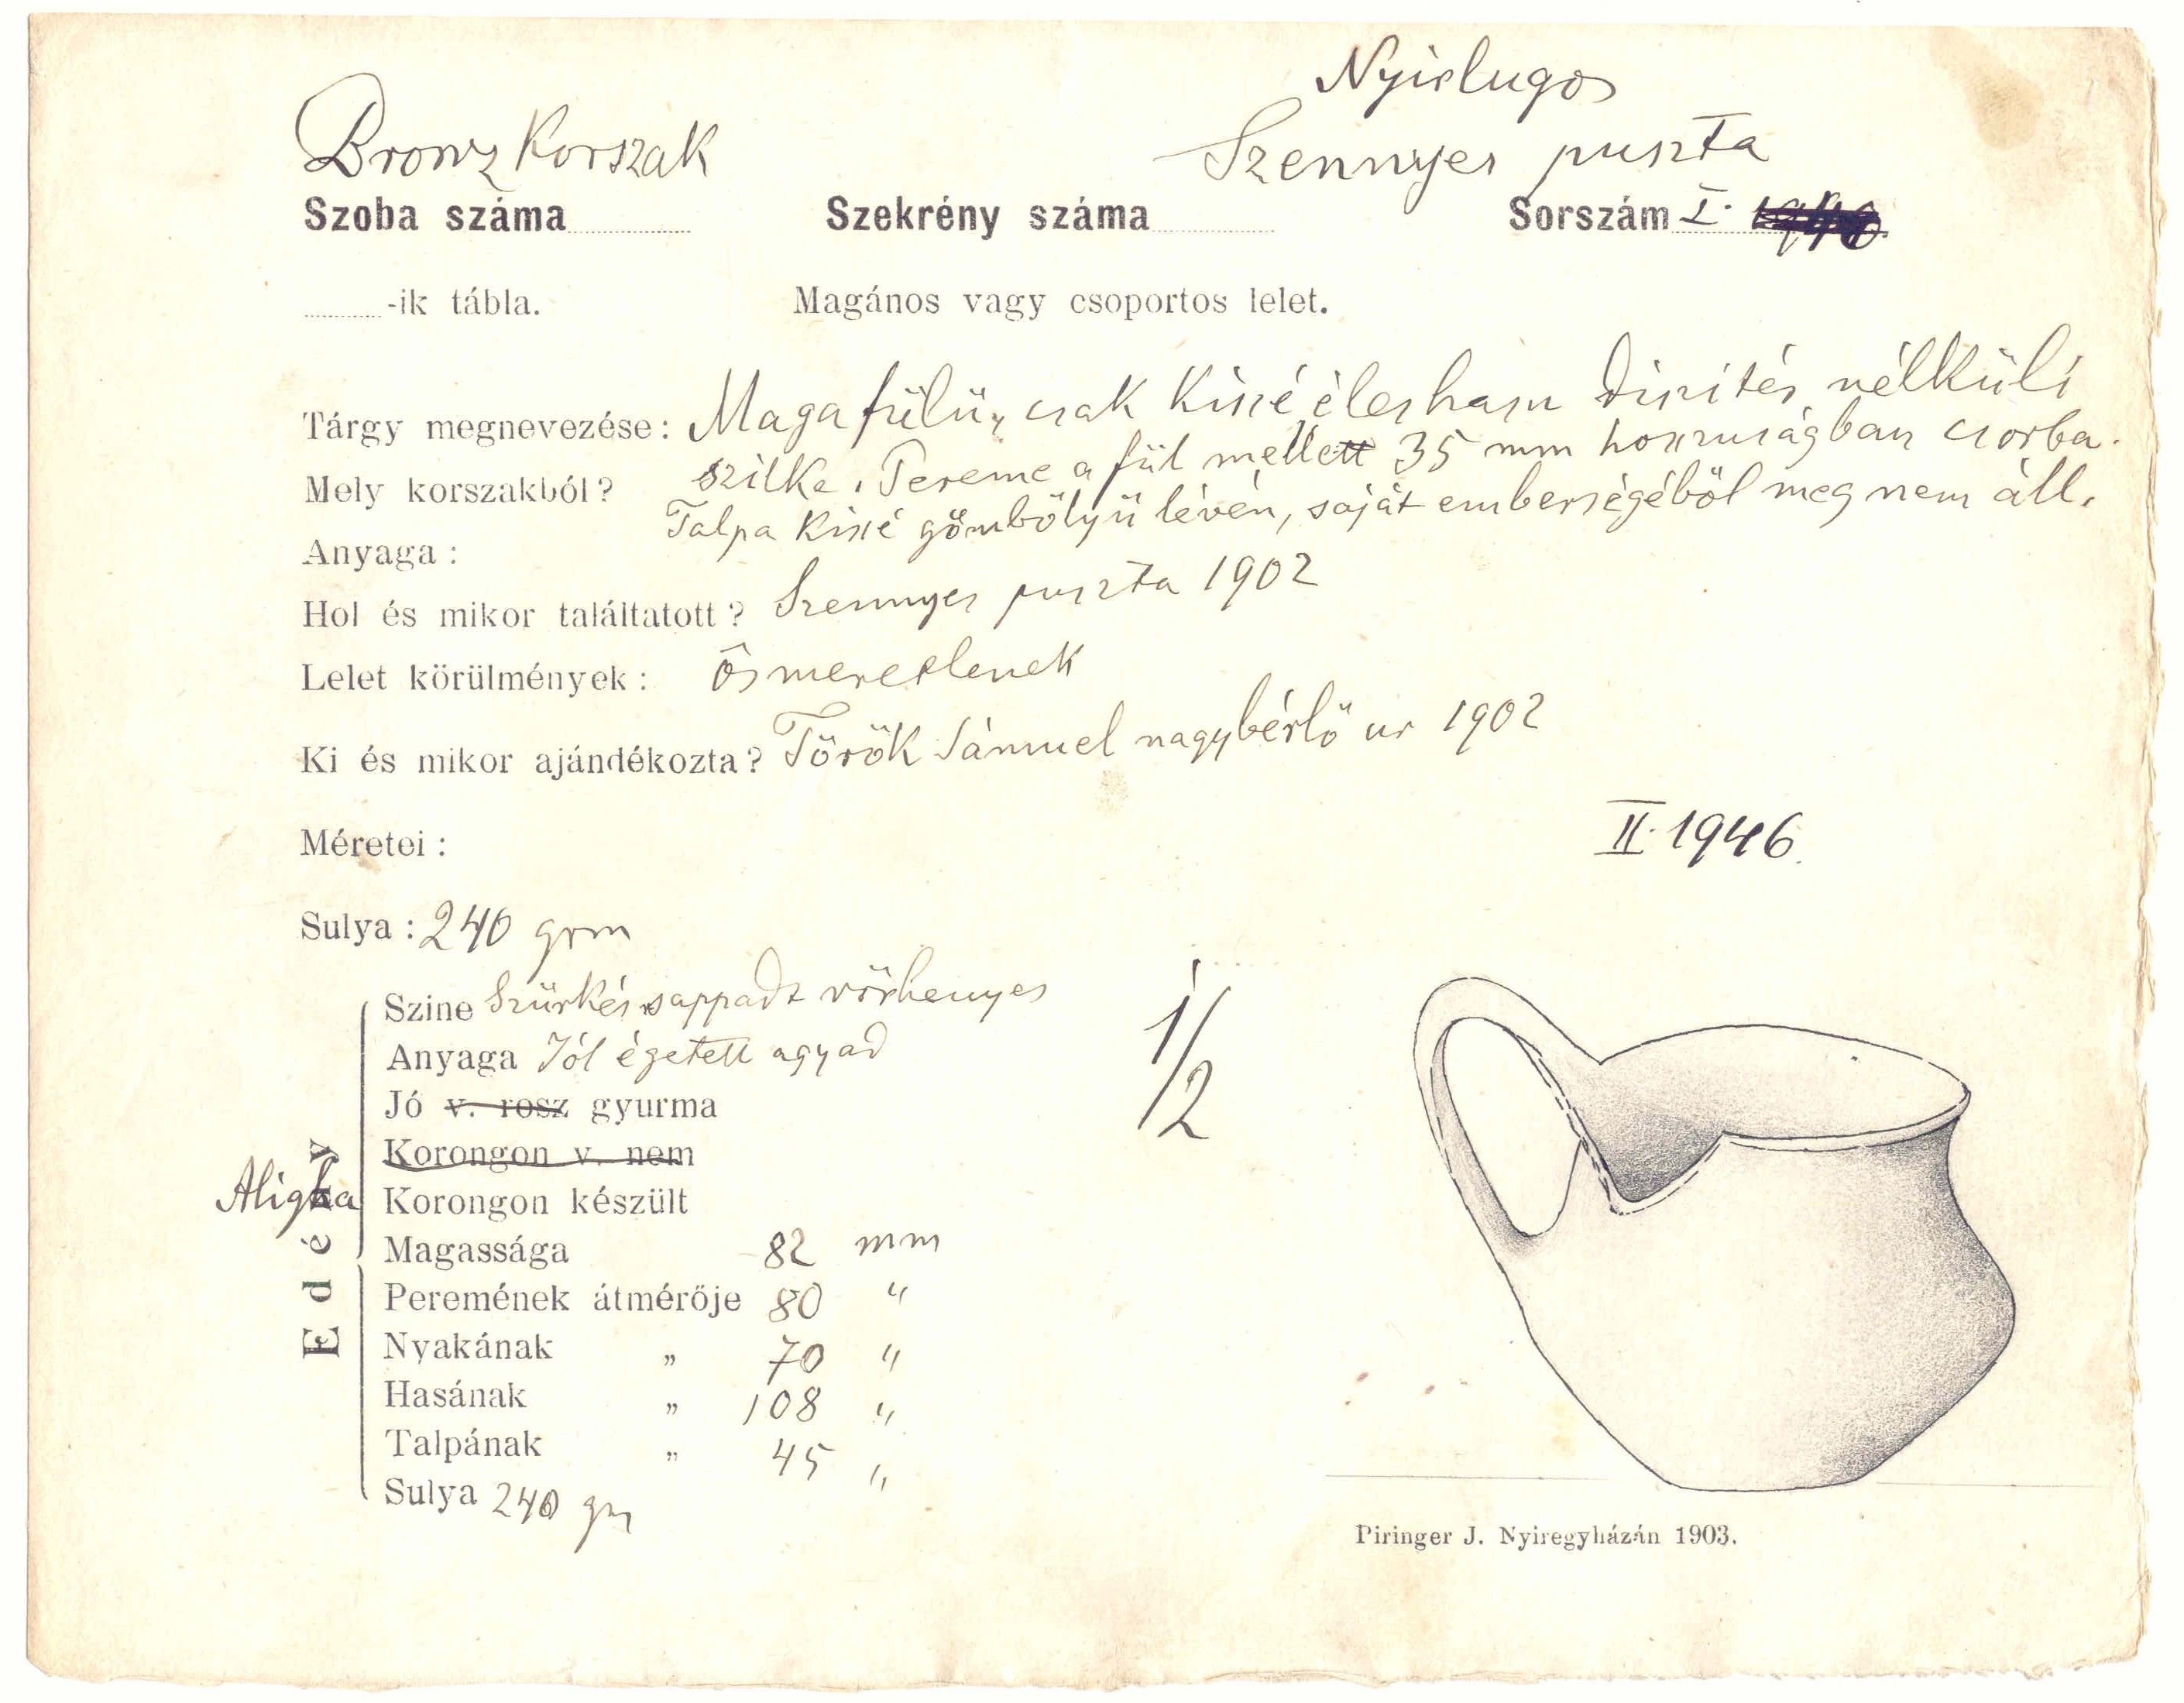 Nyirlugos
Bronz Korszak
Szennyes puszta
Szoba száma Szekrény száma Sorszám I.
-ik tábla. Magános vagy csoportos lelet.
Tárgy megnevezése: Maga fülü, csak kissé éleshasu diszités nélküli
szilke. Pereme a fül mellett 35 mm hosszuságban csorba.
Mely korszakból?
Talpa kissé gömbölyü lévén, saját emberségéből meg nem áll.
Anyaga:
Hol és mikor találtatott? Szennyes puszta 1902
Lelet körülmények: ösmeretlenek
Ki és mikor ajándékozta? Török Sámuel nagybérlő ur 1902
II. 1946.
Méretei:
Sulya: 240 grm
Szine Szürkés sappadt vörhenyes
1/2
Anyaga Jól égetett agyad
Jó v. rosz gyurma
Korongon v. nem
Aligha Korongon készült
Edény
Magassága 82 mm
Peremének átmérője 80 "
Nyakának „ 70 "
Hasának „ 108 "
Talpának „ 45 "
Sulya 240 gm
Piringer J. Nyiregyházán 1903.